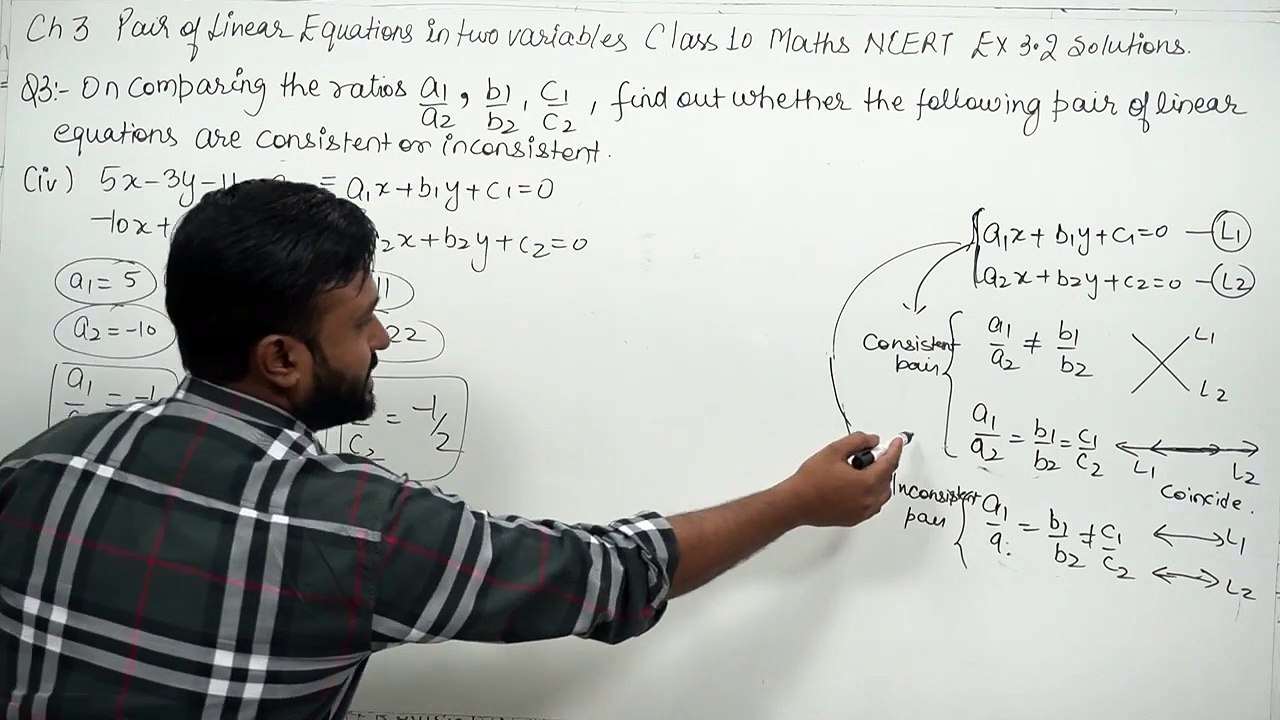 Ch 3 Pair of Linear Equations in two variables Class 10 Maths NCERT EX 3.2 Solutions.
Q3:- On comparing the ratios a1/a2, b1/b2, c1/c2, find out whether the following pair of linear
equations are consistent or inconsistent.
(iv) 5x-3y-11 = a1x+b1y+c1=0
-10x+ 2x+b2y+c2=0
a1=5 11
a2=-10 22
a1 = -1
c2 = -1/2
a1x+b1y+c1=0 -L1
a2x+b2y+c2=0 -L2
Consistent pair a1/a2 ≠ b1/b2 L1 L2
a1/a2 = b1/b2 = c1/c2 L1 L2
Coincide.
Inconsistent pair a1/a = b1/b2 ≠ c1/c2 L1 L2